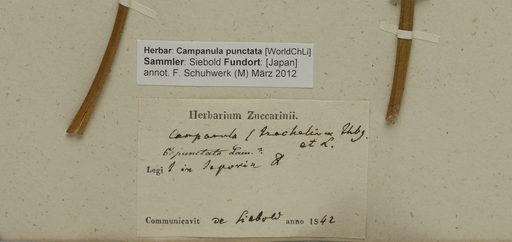 Herbar: Campanula punctata [WorldChLi]
Sammler: Siebold Fundort: [Japan]
annot. F. Schuhwerk (M) März 2012
Herbarium Zuccarinii.
Campanula / Trachelium Thbg.
et L.
punctata Lam.?
Legi in Japonia
Communicavit de Siebold anno 1842